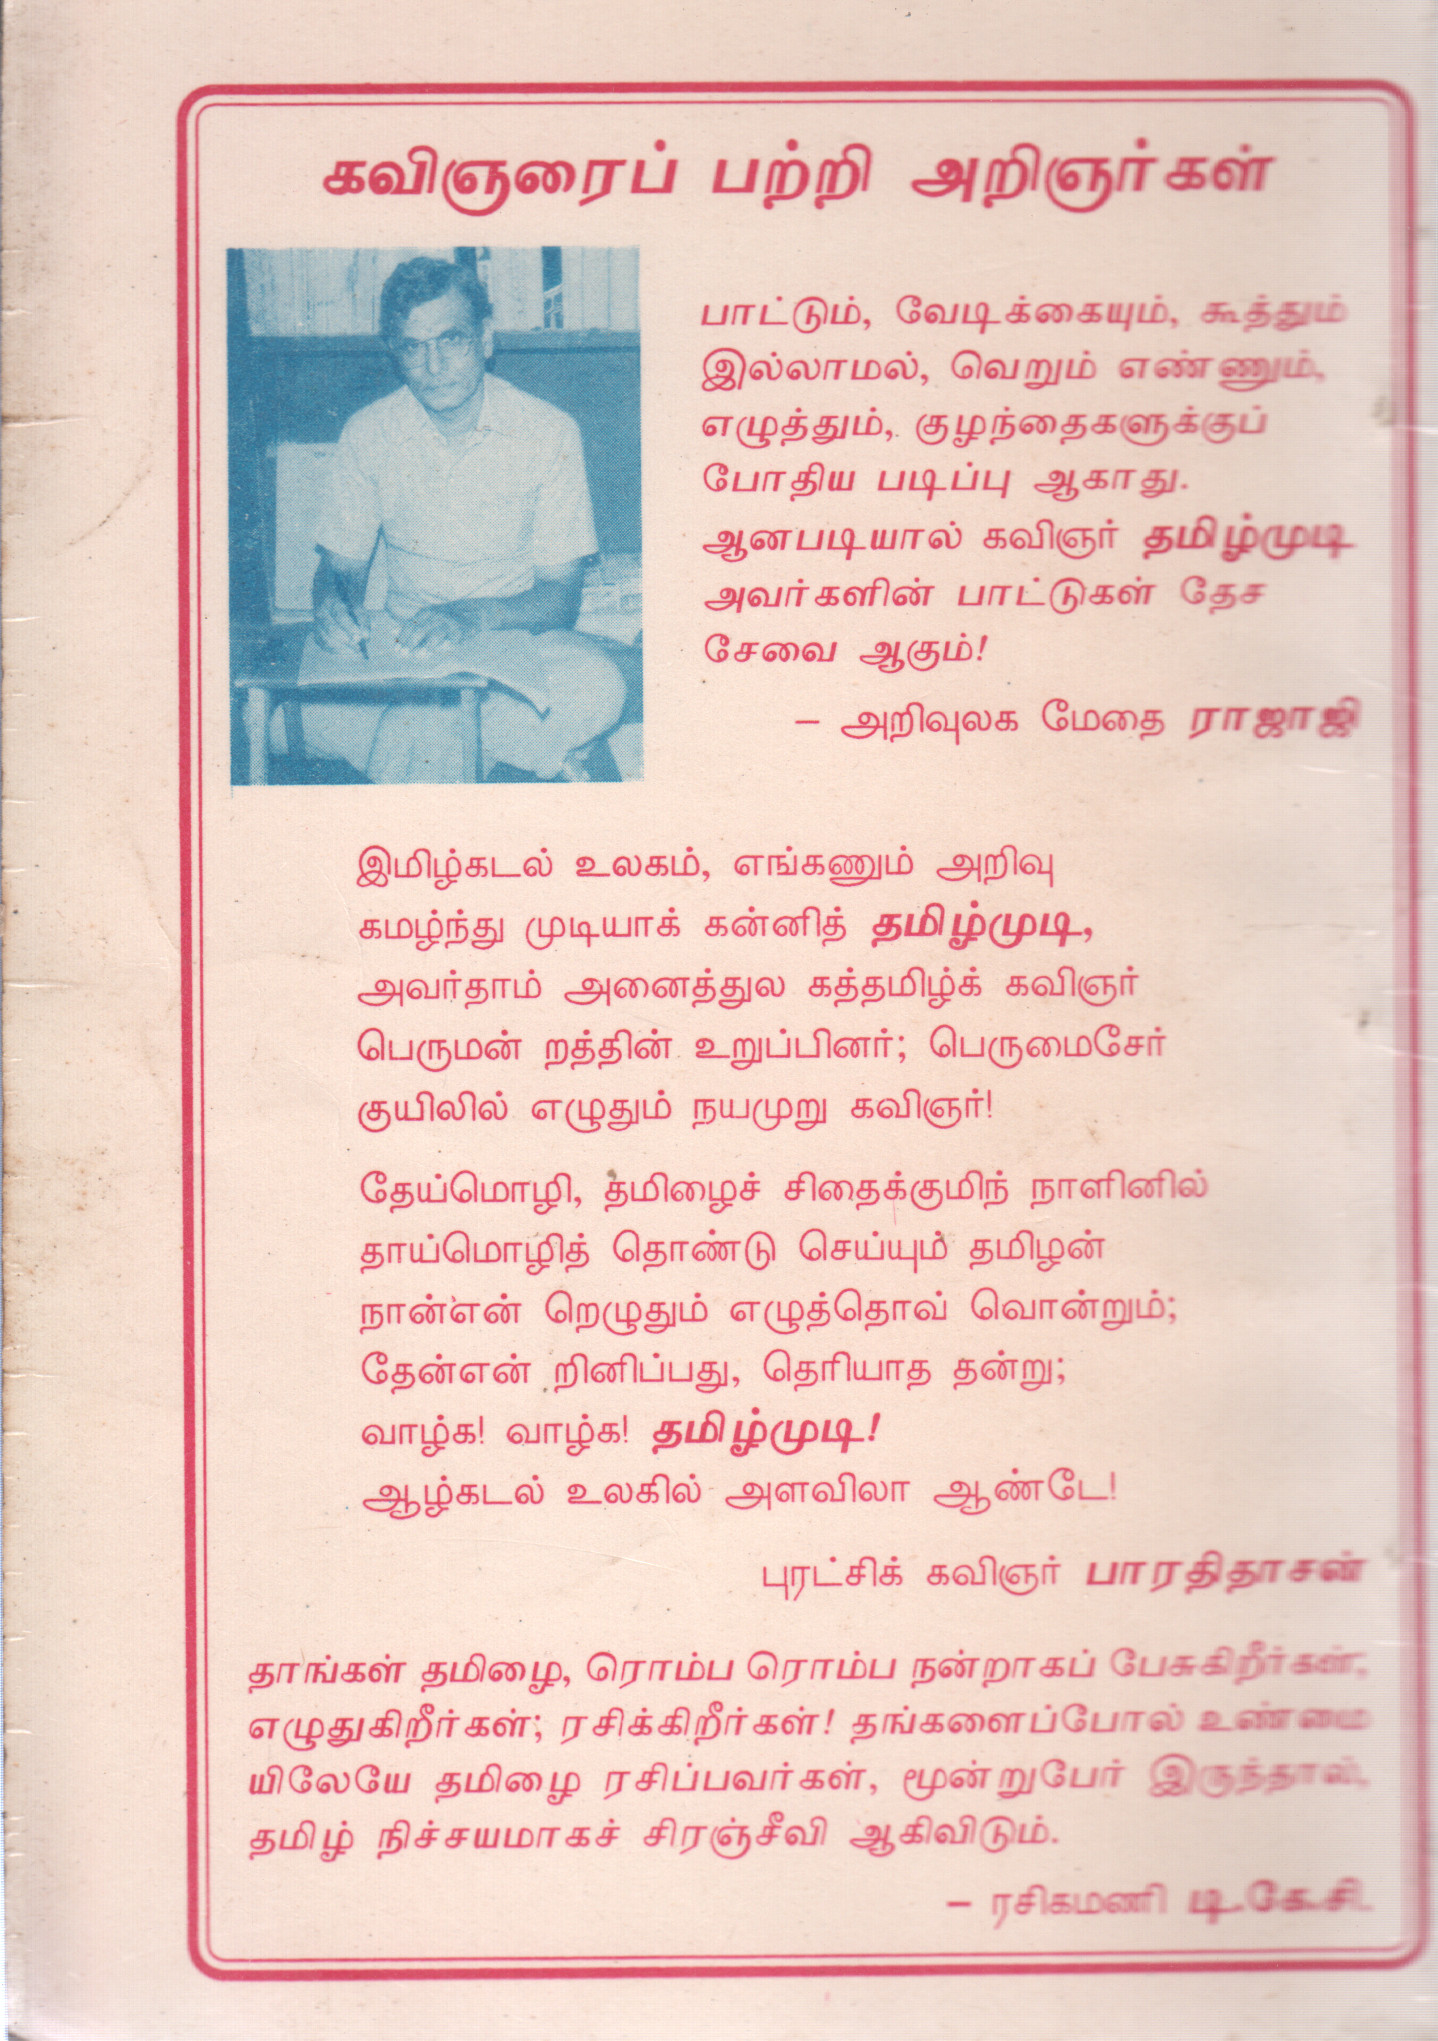 கவிஞரைப் பற்றி அறிஞர்கள்
பாட்டும், வேடிக்கையும், கூத்தும்
இல்லாமல், வெறும் எண்ணும்,
எழுத்தும், குழந்தைகளுக்குப்
போதிய படிப்பு ஆகாது.
ஆனபடியால் கவிஞர் தமிழ்முடி
அவர்களின் பாட்டுகள் தேச
சேவை ஆகும்!
– அறிவுலக மேதை ராஜாஜி
இமிழ்கடல் உலகம், எங்கணும் அறிவு
கமழ்ந்து முடியாக் கன்னித் தமிழ்முடி,
அவர்தாம் அனைத்துல கத்தமிழ்க் கவிஞர்
பெருமன் றத்தின் உறுப்பினர்; பெருமைசேர்
குயிலில் எழுதும் நயமுறு கவிஞர்!
தேய்மொழி, தமிழைச் சிதைக்குமிந் நாளினில்
தாய்மொழித் தொண்டு செய்யும் தமிழன்
நான்என் றெழுதும் எழுத்தொவ் வொன்றும்;
தேன்என் றினிப்பது, தெரியாத தன்று;
வாழ்க! வாழ்க! தமிழ்முடி!
ஆழ்கடல் உலகில் அளவிலா ஆண்டே!
புரட்சிக் கவிஞர் பாரதிதாசன்
தாங்கள் தமிழை, ரொம்ப ரொம்ப நன்றாகப் பேசுகிறீர்கள்;
எழுதுகிறீர்கள்; ரசிக்கிறீர்கள்! தங்களைப்போல் உண்மை
யிலேயே தமிழை ரசிப்பவர்கள், மூன்றுபேர் இருந்தால்,
தமிழ் நிச்சயமாகச் சிரஞ்சீவி ஆகிவிடும்.
– ரசிகமணி டி.கே.சி.